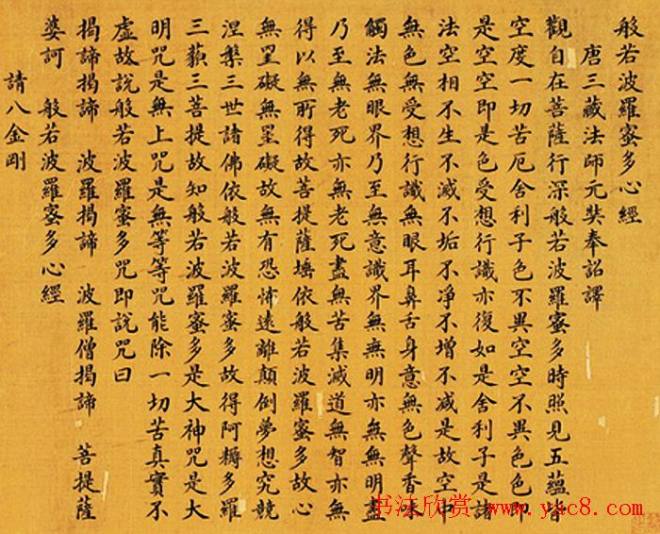 般若波羅蜜多心經
唐三藏法師元奘奉詔譯
觀自在菩薩行深般若波羅蜜多時照見五蘊皆
空度一切苦厄舍利子色不異空空不異色色即
是空空即是色受想行識亦復如是舍利子是諸
法空相不生不滅不垢不淨不增不減是故空中
無色無受想行識無眼耳鼻舌身意無色聲香味
觸法無眼界乃至無意識界無無明亦無無明盡
乃至無老死亦無老死盡無苦集滅道無智亦無
得以無所得故菩提薩埵依般若波羅蜜多故心
無罣礙無罣礙故無有恐怖遠離顛倒夢想究竟
涅槃三世諸佛依般若波羅蜜多故得阿耨多羅
三藐三菩提故知般若波羅蜜多是大神咒是大
明咒是無上咒是無等等咒能除一切苦真實不
虛故說般若波羅蜜多咒即說咒曰
揭諦揭諦 波羅揭諦 波羅僧揭諦 菩提薩
婆訶 般若波羅蜜多心經
請八金剛
书法欣赏 www.yac8.com